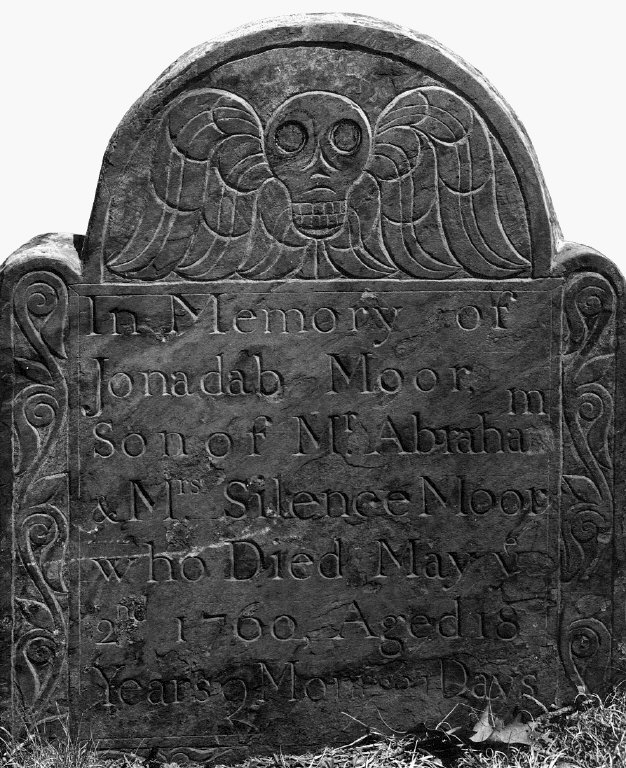 In Memory of
Jonadab Moor,
Son of Mr. Abraham
& Mrs. Silence Moor
who Died May ye
2d 1760, Aged 18
Years 9 Mon Days